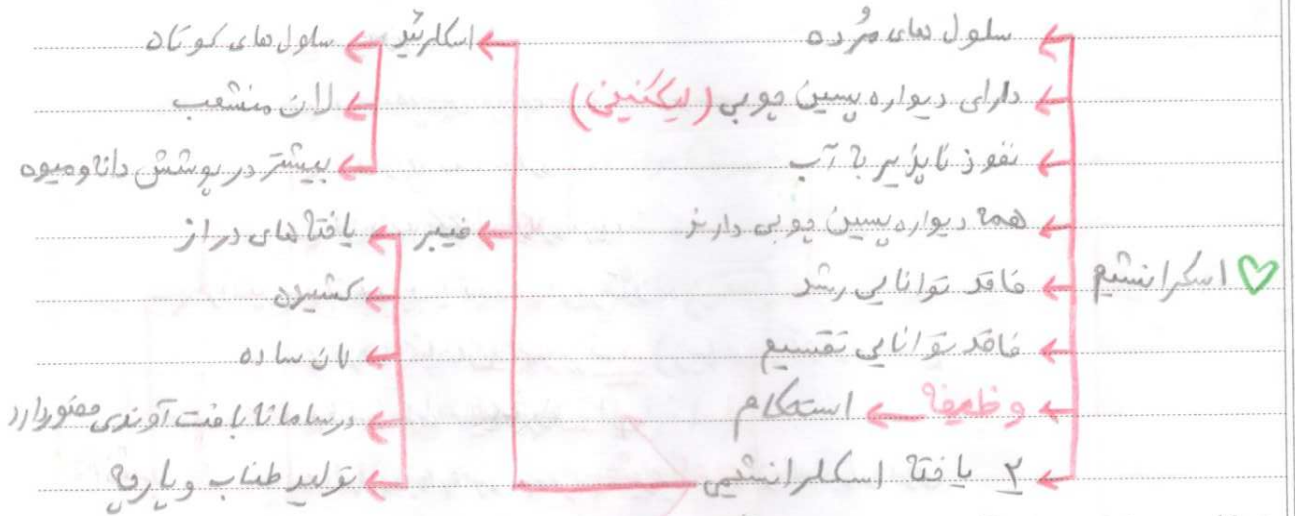 اسکرانشیم
سلول های مُرده
دارای دیواره پسین چوبی (لیگنین)
نفوذ ناپذیر به آب
همه دیواره پسین چوبی دارند
فاقد توانایی رشد
فاقد توانایی تقسیم
وظیفه استحکام
۲ یافته اسکلرانشیمی
اسکلرئید سلول های کوتاه
لان منشعب
بیشتر در پوشش دانه و میوه
فیبر یافته های دراز
کشیده
لان ساده
در سامانه بافت آوندی حضور دارد
تولید طناب و پارچه